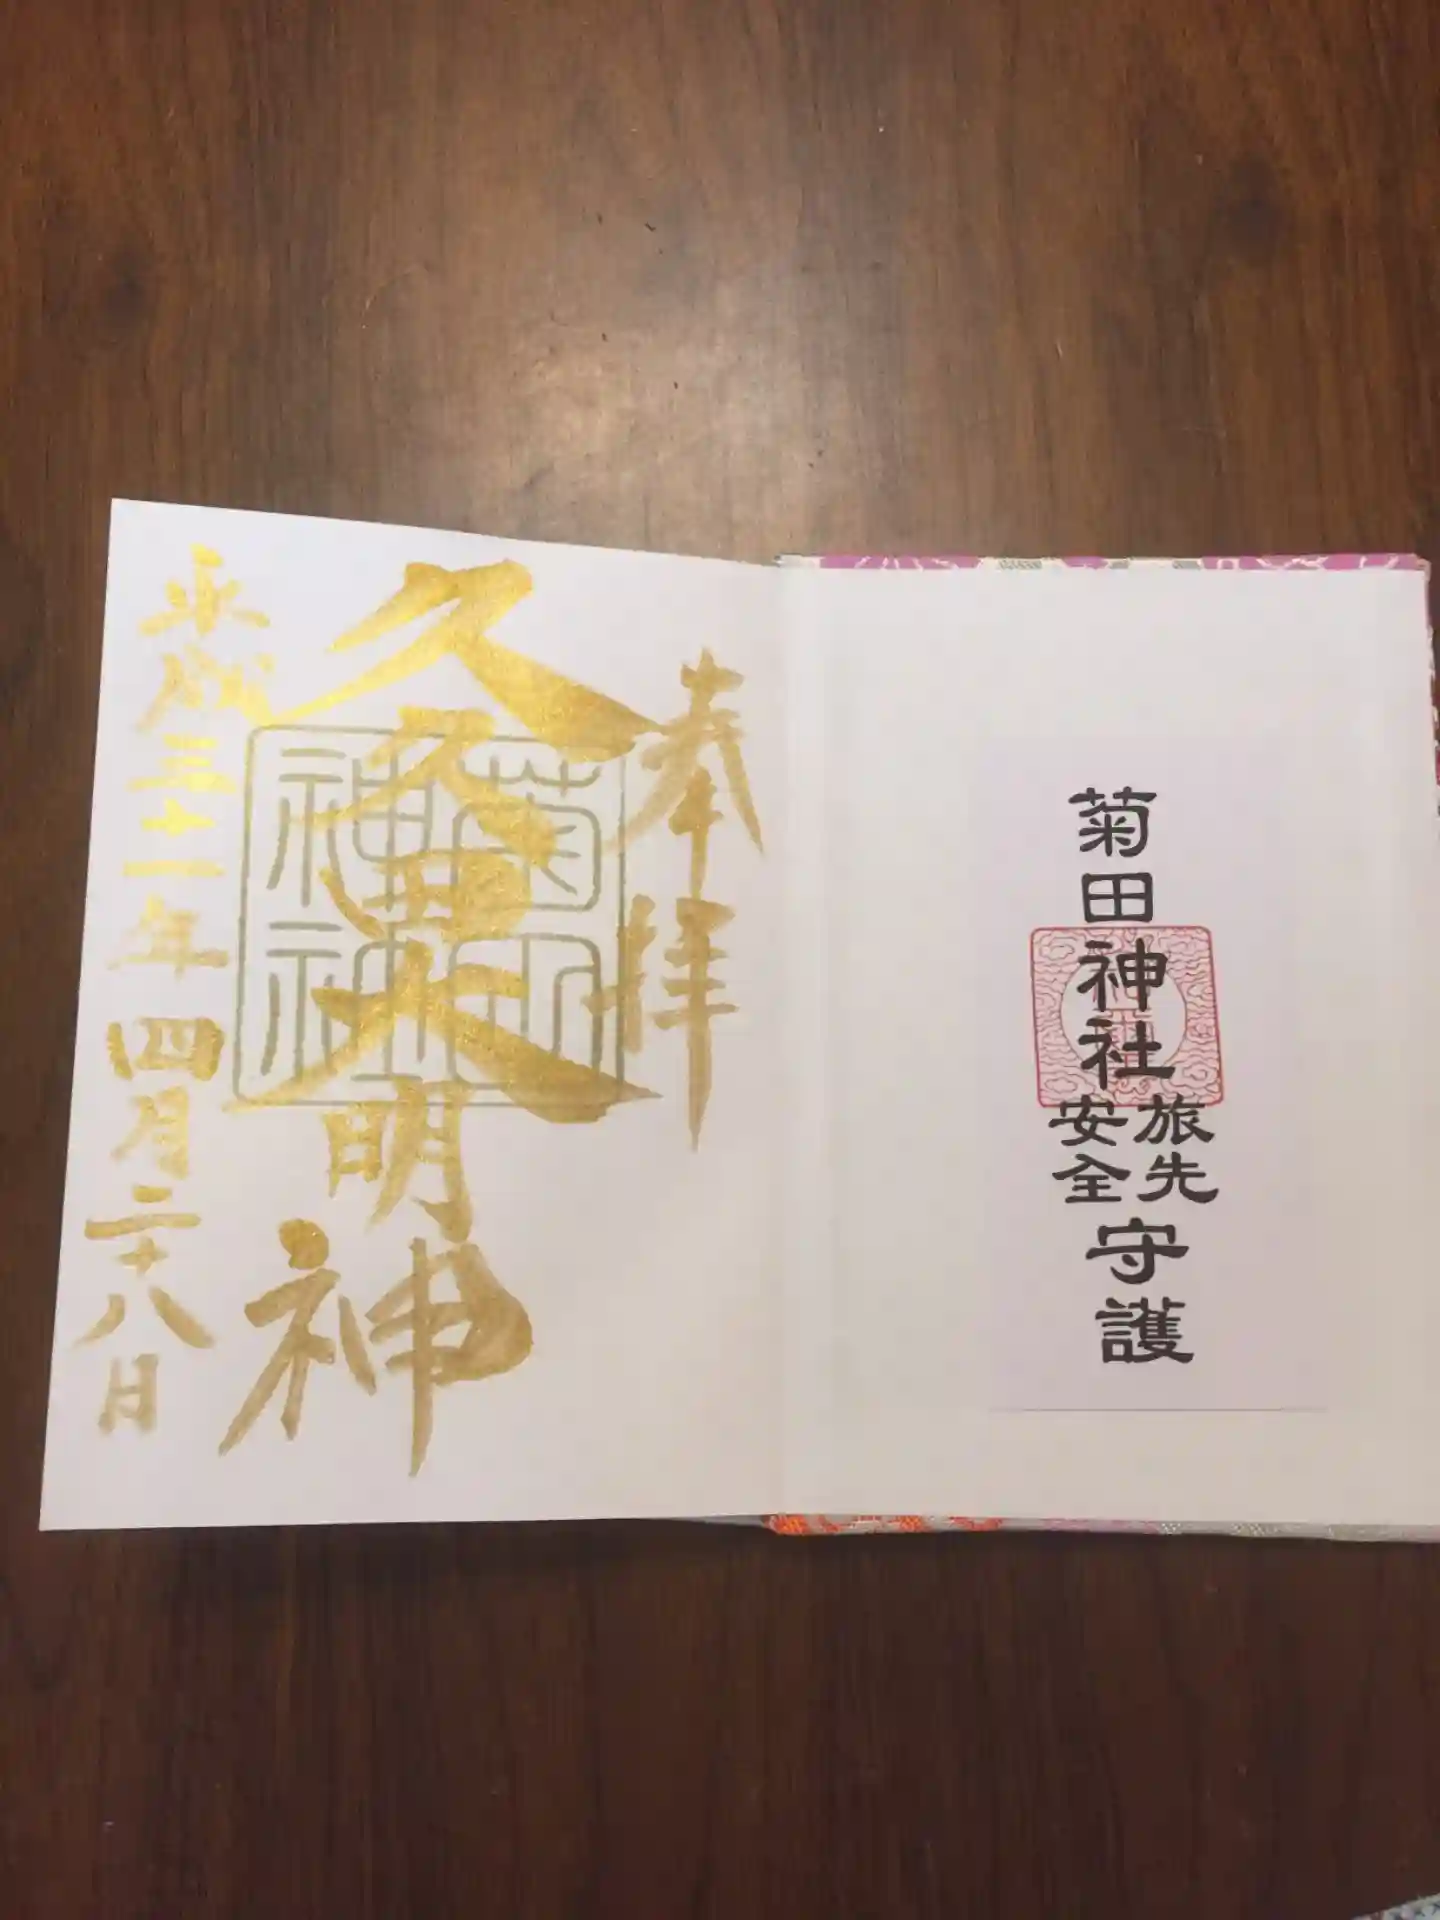 菊田神社
旅先
安全
守護
奉拝
久久田大明神
菊田
神社
平成三十一年四月二十八日